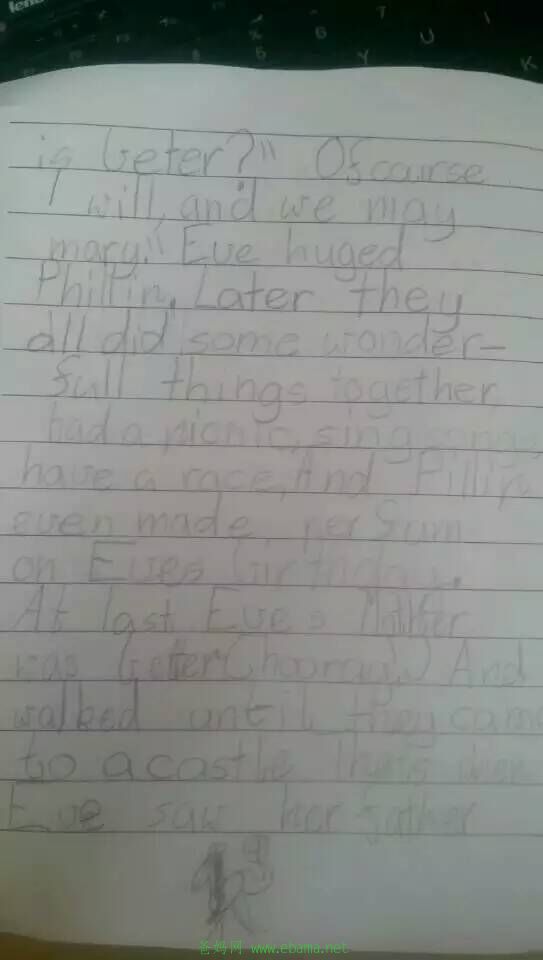 leno
6
7
U
I
5
Y
K
is beter?" Ofcaurse
I will, and we may
mary." Eve huged
Phillin. Later they
all did some wonder-
full things together,
had a picnic, sing songs,
have a race, And Pillip
even made perfum
on Eves birthday.
At last Eve's Mother
was beter(hooray!) And
walked until they came
to a castle thats when
Eve saw her father
爸妈网 www.ebama.net